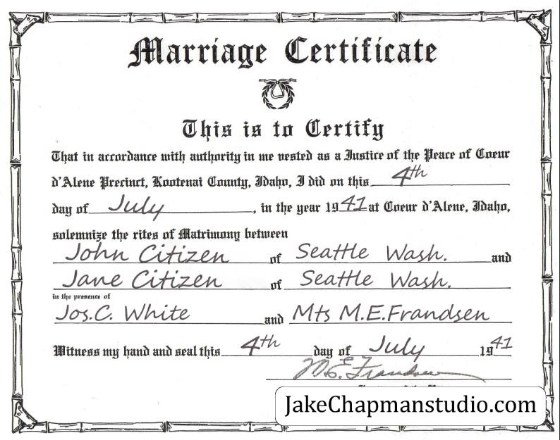 Marriage Certificate
This is to Certify
That in accordance with authority in me vested as a Justice of the Peace of Coeur
d'Alene Precinct, Kootenai County, Idaho, I did on this 4th
day of July, in the year 1941 at Coeur d'Alene, Idaho,
solemnize the rites of Matrimony between
John Citizen of Seattle Wash. and
Jane Citizen of Seattle Wash.
in the presence of
Jos.C. White and Mts M.E.Frandsen
Witness my hand and seal this 4th day of July 1941
M.E. Frandsen
JakeChapmanstudio.com